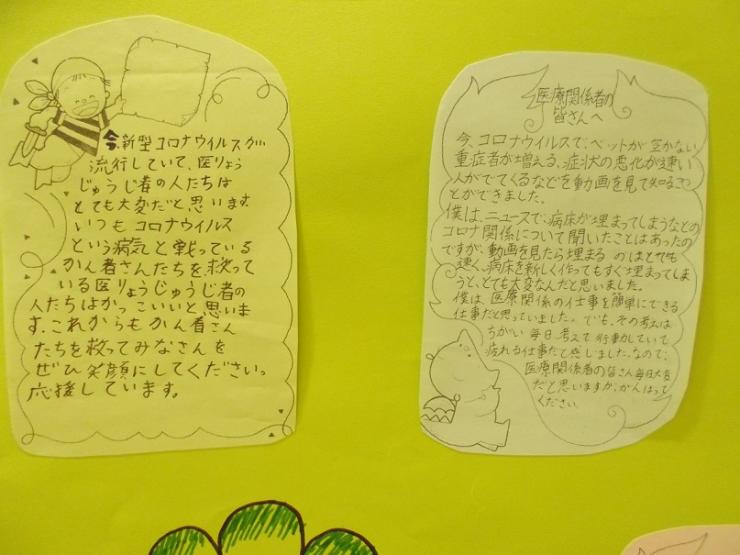 今、新型コロナウイルスが
流行していて、医りょう
じゅうじ者の人たちは
とても大変だと思います。
いつもコロナウイルス
という病気と戦っている
かん者さんたちを救って
いる医りょうじゅうじ者の
人たちはかっこいいと思いま
す。これからもかん者さん
たちを救ってみなさんを
ぜひ笑顔にしてください。
応援しています。
医療関係者の
皆さんへ
今、コロナウイルスで、ベットが空かない
重症者が増える、症状の悪化が速い
人がでてくるなどを動画を見て知るこ
とができました。
僕は、ニュースで、病床が埋まってしまうなどの
コロナ関係について聞いたことはあったの
ですが、動画を見たら埋まるのはとても
速く、病床を新しく作ってもすぐ埋まってしま
うと、とても大変なんだと思いました。
僕は、医療関係の仕事を簡単にできる
仕事だと思っていました。でも、その考えは
ちがい毎日考えて行動していて
疲れる仕事だと感じました。なので、
医療関係者の皆さん毎日大変
だと思いますが、がんばって
ください。